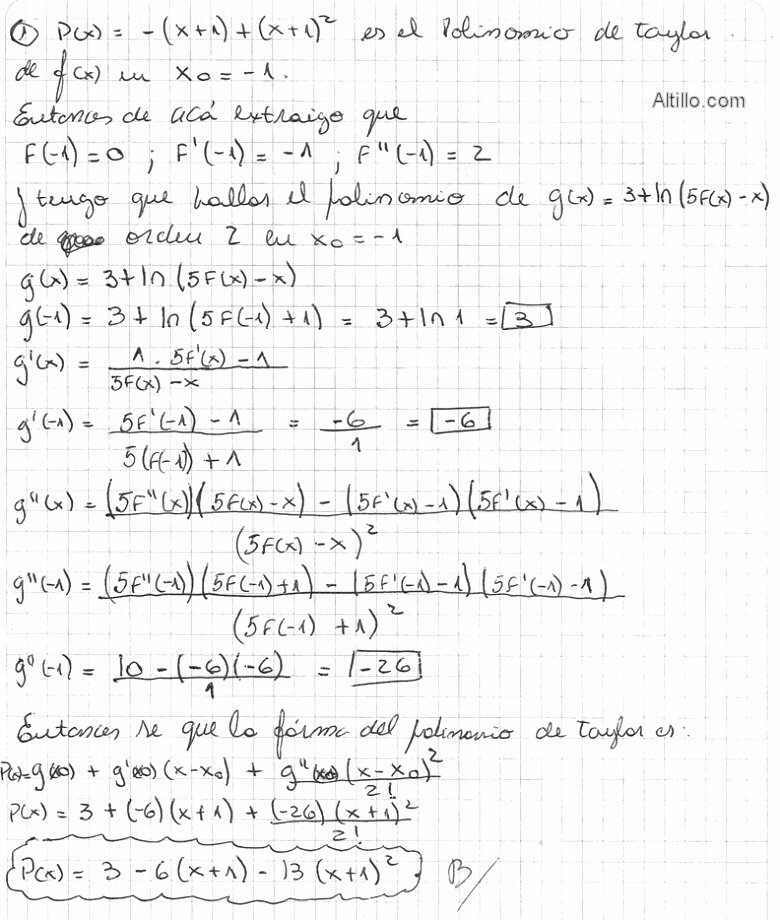 ① P(x) = -(x+1) + (x+1)² es el Polinomio de taylor
de f(x) en x₀ = -1.
Altillo.com
Entonces de acá extraigo que
F(-1)=0 ; F'(-1) = -1 ; F''(-1) = 2
y tengo que hallar el polinomio de g(x) = 3+ln(5F(x)-x)
de orden 2 en x₀ = -1
g(x) = 3+ln(5F(x)-x)
g(-1) = 3 + ln(5F(-1)+1) = 3+ln1 = 3
g'(x) = 1. 5F'(x) - 1 / 5F(x) - x
g'(-1) = 5F'(-1) - 1 / 5(F(-1)) + 1 = -6/1 = -6
g''(x) = (5F''(x))(5F(x)-x) - (5F'(x)-1)(5F'(x)-1) / (5F(x)-x)²
g''(-1) = (5F''(-1))(5F(-1)+1) - (5F'(-1)-1)(5F'(-1)-1) / (5F(-1)+1)²
g''(-1) = 10-(-6)(-6) / 1 = -26
Entonces se que la forma del polinomio de taylor es:
P(x)=g(x₀) + g'(x₀)(x-x₀) + g''(x₀)(x-x₀)² / 2!
P(x) = 3 + (-6)(x+1) + (-26)(x+1)² / 2!
P(x) = 3 - 6(x+1) - 13(x+1)² B/